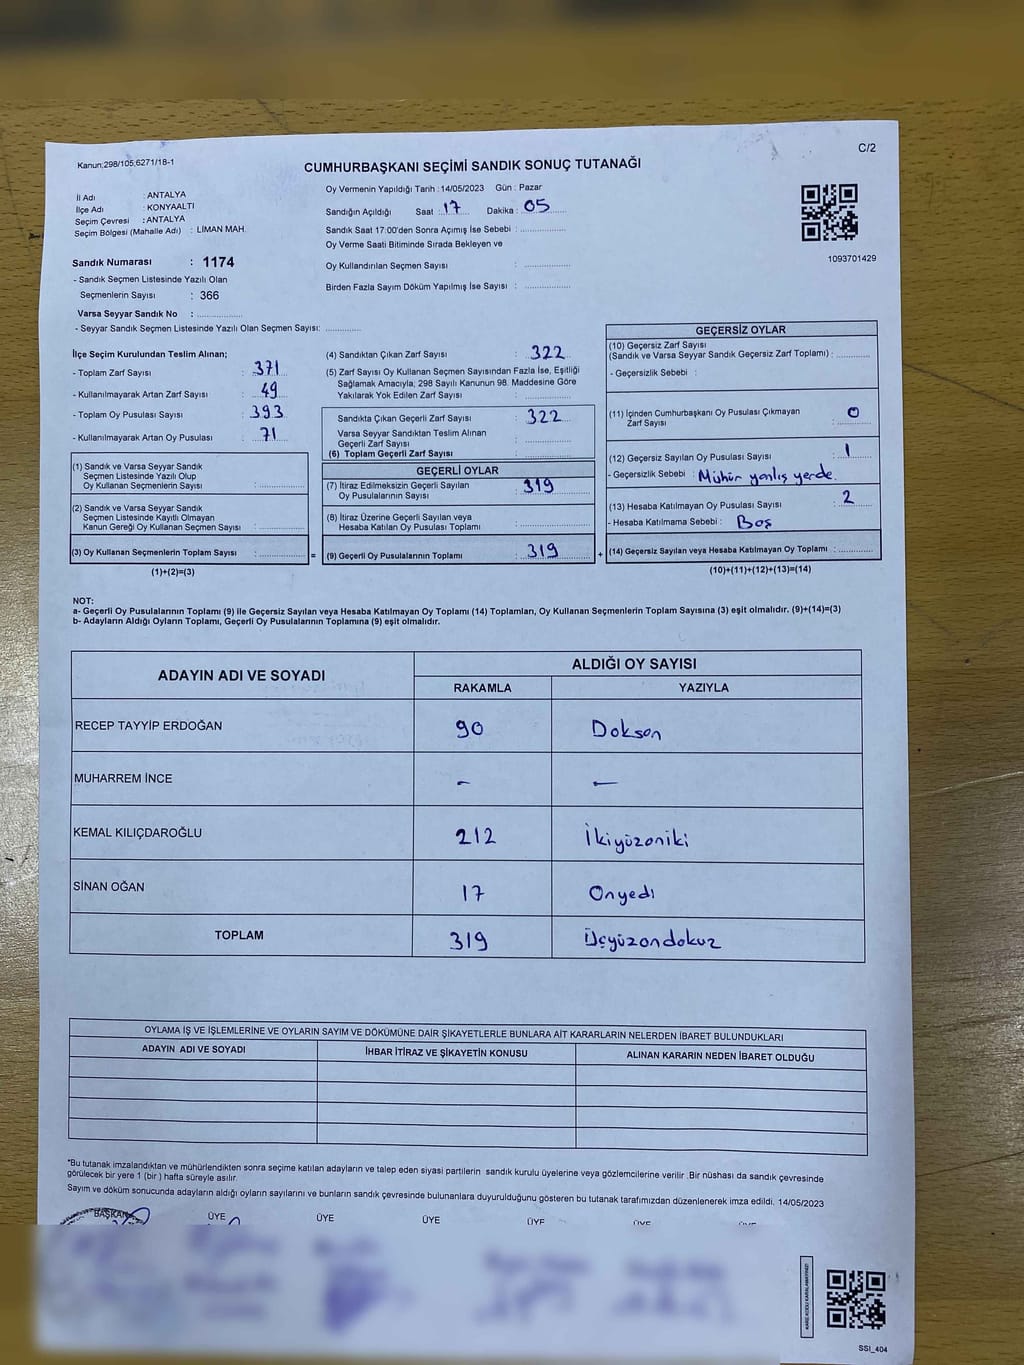 Kanun;298/105,6271/18-1
CUMHURBAŞKANI SEÇİMİ SANDIK SONUÇ TUTANAĞI
C/2
İl Adı : ANTALYA
İlçe Adı : KONYAALTI
Seçim Çevresi : ANTALYA
Seçim Bölgesi (Mahalle Adı) : LİMAN MAH.
Oy Vermenin Yapıldığı Tarih : 14/05/2023 Gün : Pazar
Sandığın Açıldığı Saat : 17 Dakika : 05
Sandık Saat 17:00'den Sonra Açımış İse Sebebi :
Oy Verme Saati Bitiminde Sırada Bekleyen ve
Oy Kullandırılan Seçmen Sayısı :
Birden Fazla Sayım Döküm Yapılmış İse Sayısı :
1093701429
Sandık Numarası : 1174
- Sandık Seçmen Listesinde Yazılı Olan
Seçmenlerin Sayısı : 366
Varsa Seyyar Sandık No :
- Seyyar Sandık Seçmen Listesinde Yazılı Olan Seçmen Sayısı:
İlçe Seçim Kurulundan Teslim Alınan;
- Toplam Zarf Sayısı : 371
- Kullanılmayarak Artan Zarf Sayısı : 49
- Toplam Oy Pusulası Sayısı : 393
- Kullanılmayarak Artan Oy Pusulası : 71
(1) Sandık ve Varsa Seyyar Sandık
Seçmen Listesinde Yazılı Olup
Oy Kullanan Seçmenlerin Sayısı :
(2) Sandık ve Varsa Seyyar Sandık
Seçmen Listesinde Kayıtlı Olmayan
Kanun Gereği Oy Kullanan Seçmen Sayısı :
(3) Oy Kullanan Seçmenlerin Toplam Sayısı : =
(1)+(2)=(3)
(4) Sandıktan Çıkan Zarf Sayısı : 322
(5) Zarf Sayısı Oy Kullanan Seçmen Sayısından Fazla İse, Eşitliği
Sağlamak Amacıyla; 298 Sayılı Kanunun 98. Maddesine Göre
Yakılarak Yok Edilen Zarf Sayısı :
Sandıkta Çıkan Geçerli Zarf Sayısı : 322
Varsa Seyyar Sandıktan Teslim Alınan
Geçerli Zarf Sayısı :
(6) Toplam Geçerli Zarf Sayısı :
GEÇERLİ OYLAR
(7) İtiraz Edilmeksizin Geçerli Sayılan
Oy Pusulalarının Sayısı : 319
(8) İtiraz Üzerine Geçerli Sayılan veya
Hesaba Katılan Oy Pusulası Toplamı :
(9) Geçerli Oy Pusulalarının Toplamı : 319 +
GEÇERSİZ OYLAR
(10) Geçersiz Zarf Sayısı
(Sandık ve Varsa Seyyar Sandık Geçersiz Zarf Toplamı) :
- Geçersizlik Sebebi :
(11) İçinden Cumhurbaşkanı Oy Pusulası Çıkmayan
Zarf Sayısı : 0
(12) Geçersiz Sayılan Oy Pusulası Sayısı : 1
- Geçersizlik Sebebi : Mühür yanlış yerde.
(13) Hesaba Katılmayan Oy Pusulası Sayısı : 2
- Hesaba Katılmama Sebebi : Boş
(14) Geçersiz Sayılan veya Hesaba Katılmayan Oy Toplamı :
(10)+(11)+(12)+(13)=(14)
NOT:
a- Geçerli Oy Pusulalarının Toplamı (9) ile Geçersiz Sayılan veya Hesaba Katılmayan Oy Toplamı (14) Toplamları, Oy Kullanan Seçmenlerin Toplam Sayısına (3) eşit olmalıdır. (9)+(14)=(3)
b- Adayların Aldığı Oyların Toplamı, Geçerli Oy Pusulalarının Toplamına (9) eşit olmalıdır.
ADAYIN ADI VE SOYADI
ALDIĞI OY SAYISI
RAKAMLA YAZIYLA
RECEP TAYYİP ERDOĞAN 90 Doksan
MUHARREM İNCE - -
KEMAL KILIÇDAROĞLU 212 İkiyüzoniki
SİNAN OĞAN 17 Onyedi
TOPLAM 319 Üçyüzondokuz
OYLAMA İŞ VE İŞLEMLERİNE VE OYLARIN SAYIM VE DÖKÜMÜNE DAİR ŞİKAYETLERLE BUNLARA AİT KARARLARIN NELERDEN İBARET BULUNDUKLARI
ADAYIN ADI VE SOYADI İHBAR İTİRAZ VE ŞİKAYETİN KONUSU ALINAN KARARIN NEDEN İBARET OLDUĞU
*Bu tutanak imzalandıktan ve mühürlendikten sonra seçime katılan adayların ve talep eden siyasi partilerin sandık kurulu üyelerine veya gözlemcilerine verilir .Bir nüshası da sandık çevresinde
görülecek bir yere 1 (bir ) hafta süreyle asılır.
Sayım ve döküm sonucunda adayların aldığı oyların sayılarını ve bunların sandık çevresinde bulunanlara duyurulduğunu gösteren bu tutanak tarafımızdan düzenlenerek imza edildi. 14/05/2023
BAŞKAN ÜYE ÜYE ÜYE ÜYE ÜYE ÜYE
KARE KODU KARALAMAYINIZ!
SSI_404